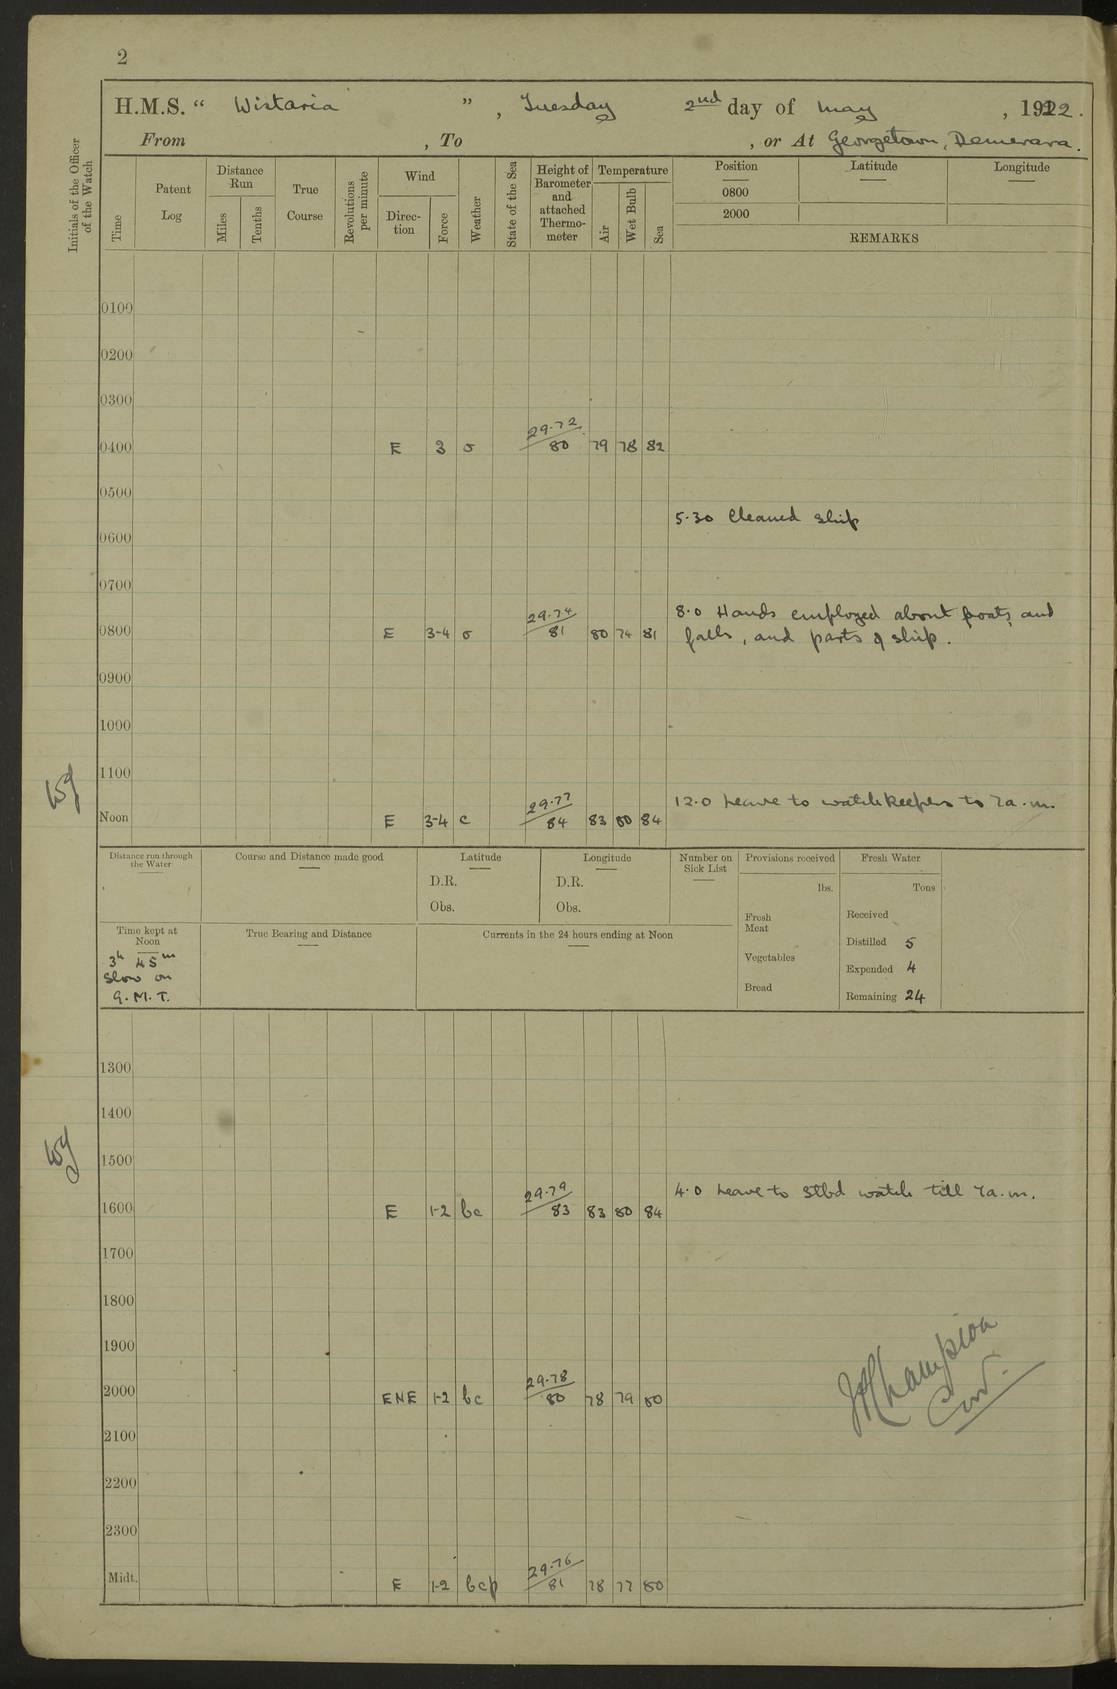 2
H.M.S. “ Wistaria ”, Tuesday 2nd day of May, 1922.
From , To , or At Georgetown, Demerara.
Initials of the Officer of the Watch
Time
Patent Log
Distance Run
Miles
Tenths
True Course
Revolutions per minute
Wind
Direction
Force
Weather
State of the Sea
Height of Barometer and attached Thermometer
Temperature
Air
Wet Bulb
Sea
Position Latitude Longitude
0800
2000
REMARKS
0100
0200
0300
0400 E 3 o 29.72/80 79 78 82
0500
5.30 Cleaned ship
0600
0700
8.0 Hands employed about boats and
0800 E 3-4 o 29.74/81 80 74 81 falls, and parts of ship.
0900
1000
1100
12.0 Leave to watchkeepers to 7a.m.
Noon E 3-4 c 29.77/84 83 80 84
Distance run through the Water
Course and Distance made good
Latitude
D.R.
Obs.
Longitude
D.R.
Obs.
Number on Sick List
Provisions received
lbs.
Fresh Meat
Vegetables
Bread
Fresh Water
Tons
Received
Distilled 5
Expended 4
Remaining 24
Time kept at Noon
3h 45m
slow on
G.M.T.
True Bearing and Distance
Currents in the 24 hours ending at Noon
1300
1400
1500
4.0 Leave to stbd watch till 7a.m.
1600 E 1-2 bc 29.79/83 83 80 84
1700
1800
1900
2000 ENE 1-2 bc 29.78/80 78 79 80
Champion
Cdr.
2100
2200
2300
Midt. E 1-2 bcp 29.76/81 78 77 80